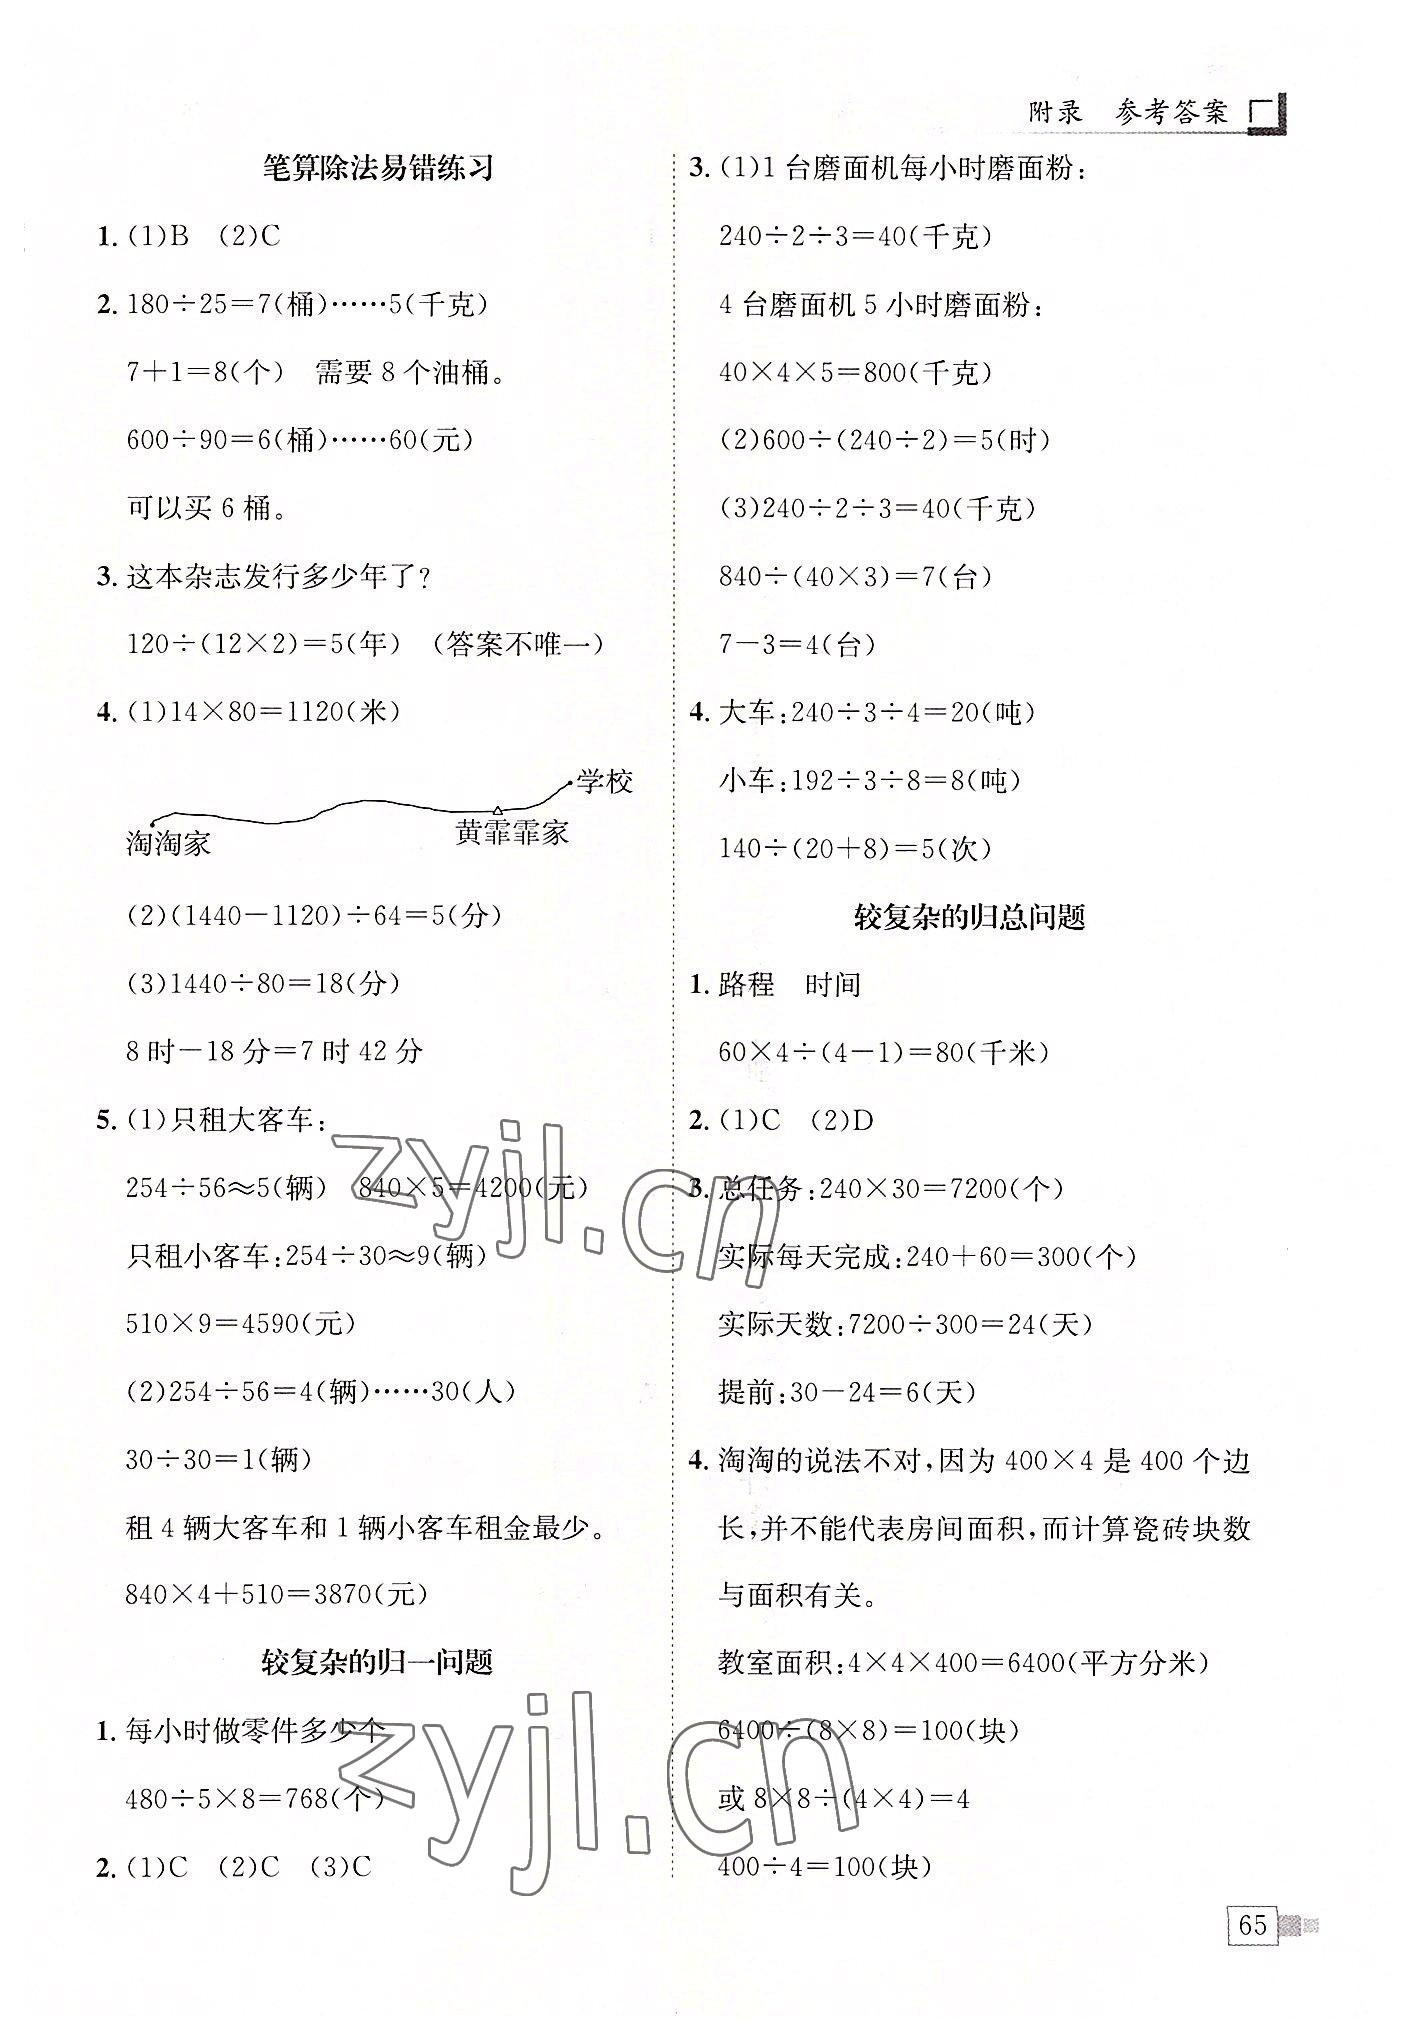 附录 参考答案
笔算除法易错练习
1. (1)B (2)C
2. 180÷25=7(桶)……5(千克)
7+1=8(个) 需要 8 个油桶。
600÷90=6(桶)……60(元)
可以买 6 桶。
3. 这本杂志发行多少年了?
120÷(12×2)=5(年) (答案不唯一)
4. (1)14×80=1120(米)
学校
淘淘家
黄霏霏家
(2)(1440-1120)÷64=5(分)
(3)1440÷80=18(分)
8 时-18 分=7 时 42 分
5. (1)只租大客车:
254÷56≈5(辆) 840×5=4200(元)
只租小客车:254÷30≈9(辆)
510×9=4590(元)
(2)254÷56=4(辆)……30(人)
30÷30=1(辆)
租 4 辆大客车和 1 辆小客车租金最少。
840×4+510=3870(元)
较复杂的归一问题
1. 每小时做零件多少个
480÷5×8=768(个)
2. (1)C (2)C (3)C
3. (1)1 台磨面机每小时磨面粉:
240÷2÷3=40(千克)
4 台磨面机 5 小时磨面粉:
40×4×5=800(千克)
(2)600÷(240÷2)=5(时)
(3)240÷2÷3=40(千克)
840÷(40×3)=7(台)
7-3=4(台)
4. 大车:240÷3÷4=20(吨)
小车:192÷3÷8=8(吨)
140÷(20+8)=5(次)
较复杂的归总问题
1. 路程 时间
60×4÷(4-1)=80(千米)
2. (1)C (2)D
3. 总任务:240×30=7200(个)
实际每天完成:240+60=300(个)
实际天数:7200÷300=24(天)
提前:30-24=6(天)
4. 淘淘的说法不对,因为 400×4 是 400 个边
长,并不能代表房间面积,而计算瓷砖块数
与面积有关。
教室面积:4×4×400=6400(平方分米)
6400÷(8×8)=100(块)
或 8×8÷(4×4)=4
400÷4=100(块)
65
zyjl.cn
zyjl.cn